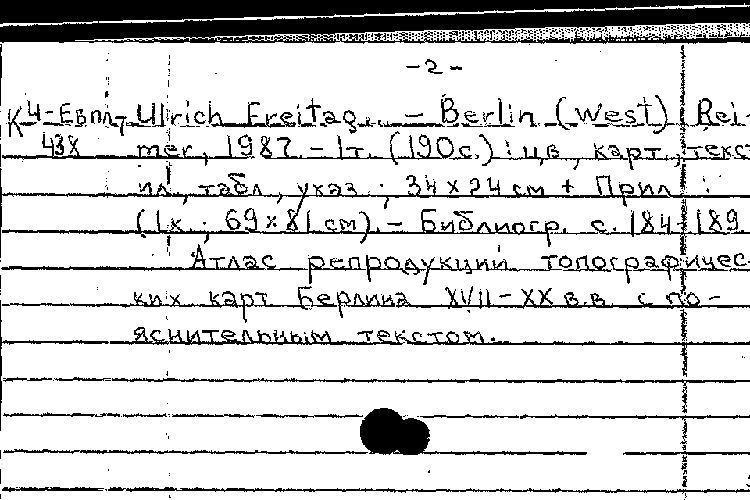 -2-
К4-Евпл7 Ulrich Freitag... - Berlin (West) Rei-
438 mer, 1987. - 1т. (190с.) : цв, карт., текст
ил, табл, указ ; 34×24 см + Прил :
(1к. ; 69×81 см). - Библиогр. с. 184-189.
Атлас репродукций топографичес-
ких карт Берлина XVII-XX в.в. с по-
яснительным текстом.